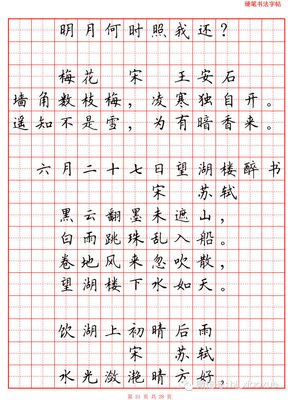 硬笔书法字帖
明月何时照我还？
梅花 宋 王安石
墙角数枝梅，凌寒独自开。
遥知不是雪，为有暗香来。
六月二十七日望湖楼醉书
宋 苏轼
黑云翻墨未遮山，
白雨跳珠乱入船。
卷地风来忽吹散，
望湖楼下水如天。
饮湖上初晴后雨
宋 苏轼
水光潋滟晴方好，
第 21 页 共 28 页